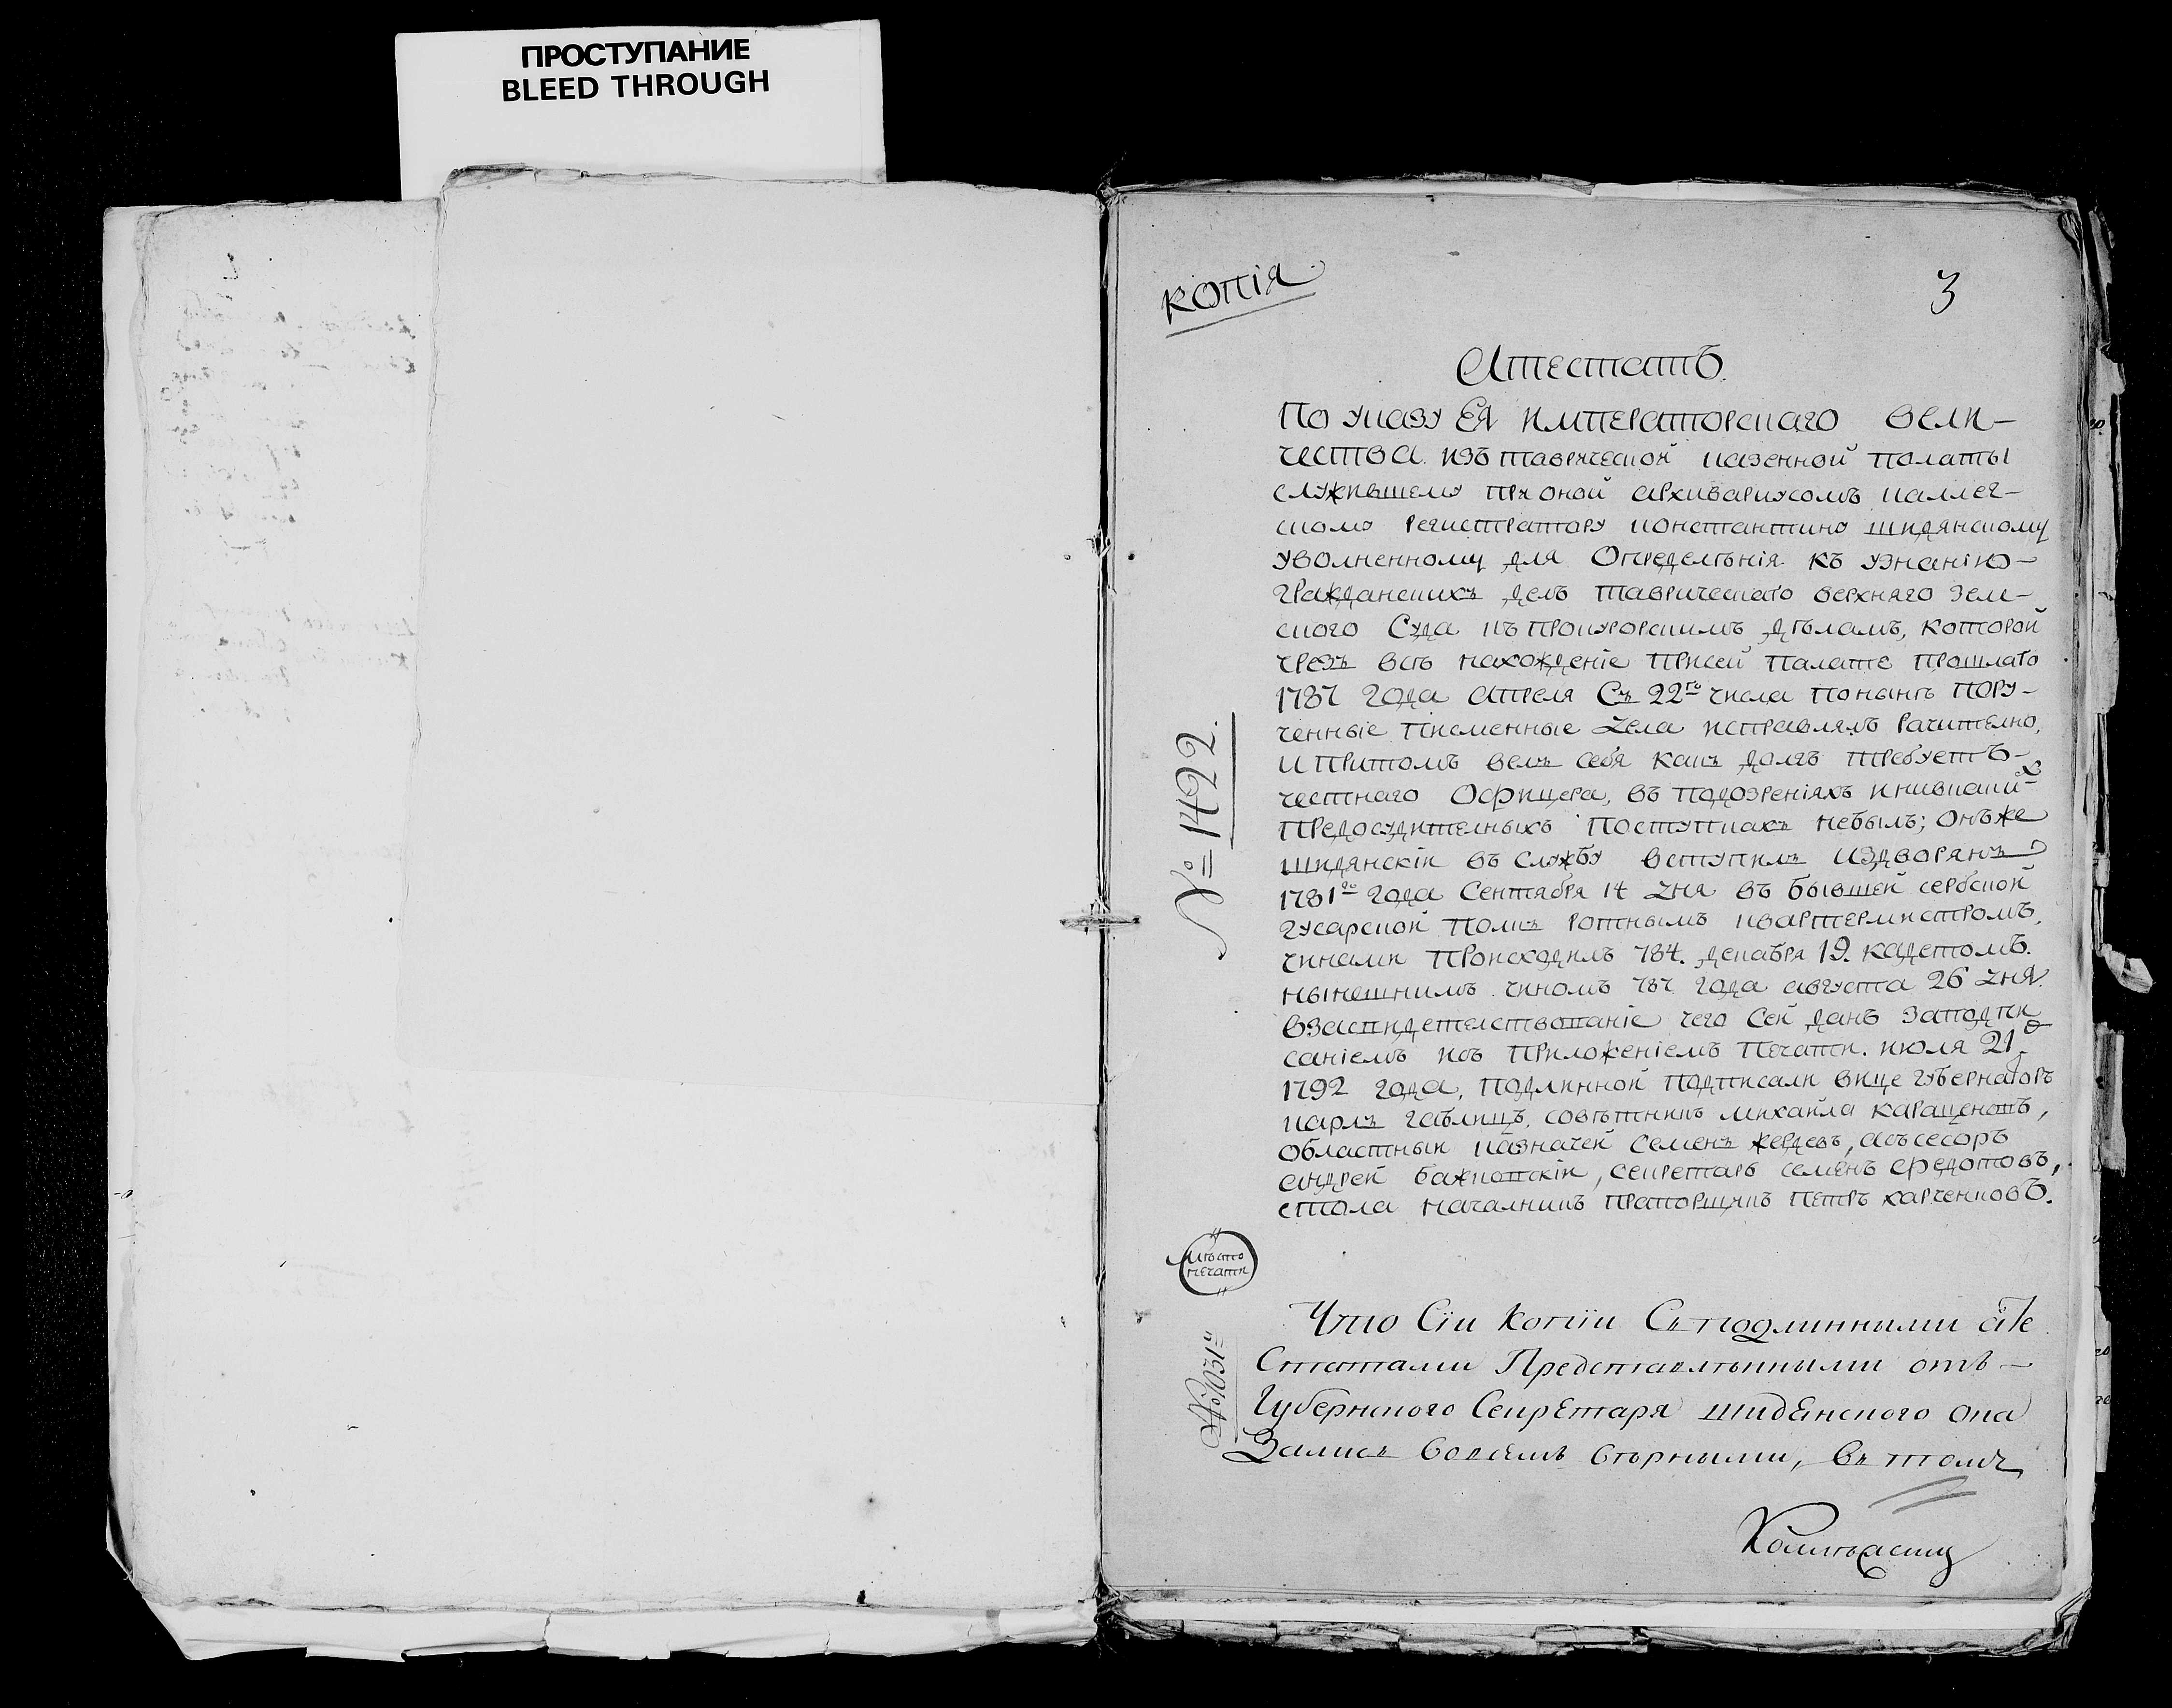 ПРОСТУПАНИЕ
BLEED THROUGH
копія
3
Аттестатъ.
По указу Ея императорскаго вели-
чества изъ таврической казенной палаты
служившему при оной архивариусомъ каллег-
скому регистратору константину шидянскому
уволненному для Определѣнія къ узнанію-
гражданскихъ делъ таврическаго верхняго зем-
ского Суда къ прокурорскимъ дѣламъ, которой
чрезъ всѣ нахожденіе присей палате прошлаго
1787 года апреля Съ 22го числа понынѣ пору-
ченные писменные дела исправлялъ рачително,
и притомъ велъ себя какъ долгъ требуетъ-
честнаго Офицера, въ подозреніяхъ ининикакихъ
предосудителныхъ поступкахъ небылъ; онъже
шидянскіи въ службу вступилъ издворянъ
1781го года Сентября 14 дня въ бывшей сербской
гусарской полкъ ротнымъ квартермистромъ,
чинами происходилъ 784. декабря 19. кадетомъ.
нынешнимъ чиномъ 787 года августа 26 дня.
взасвидетелствованіе чего Сей данъ заподпи
саніемъ исъ приложеніемъ печати. июля 21
1792 года, подлинной подписали вице губернаторъ
карлъ габлицъ, совѣтникъ михаила караценовъ,
областныи казначей Семенъ жердевъ, асъсесоръ
андрей бахновскіи, секретарь семенъ федотовъ,
стола началникъ прапорщикъ петръ харченковъ.
№ 1422.
мѣсто
печати
№ 1031й
Что Сіи копіи Съподлинными атте
Статами Представлѣнными отъ-
Губернского Секретаря шидянского ока
Зались вовсемъ вѣрными, въ томъ